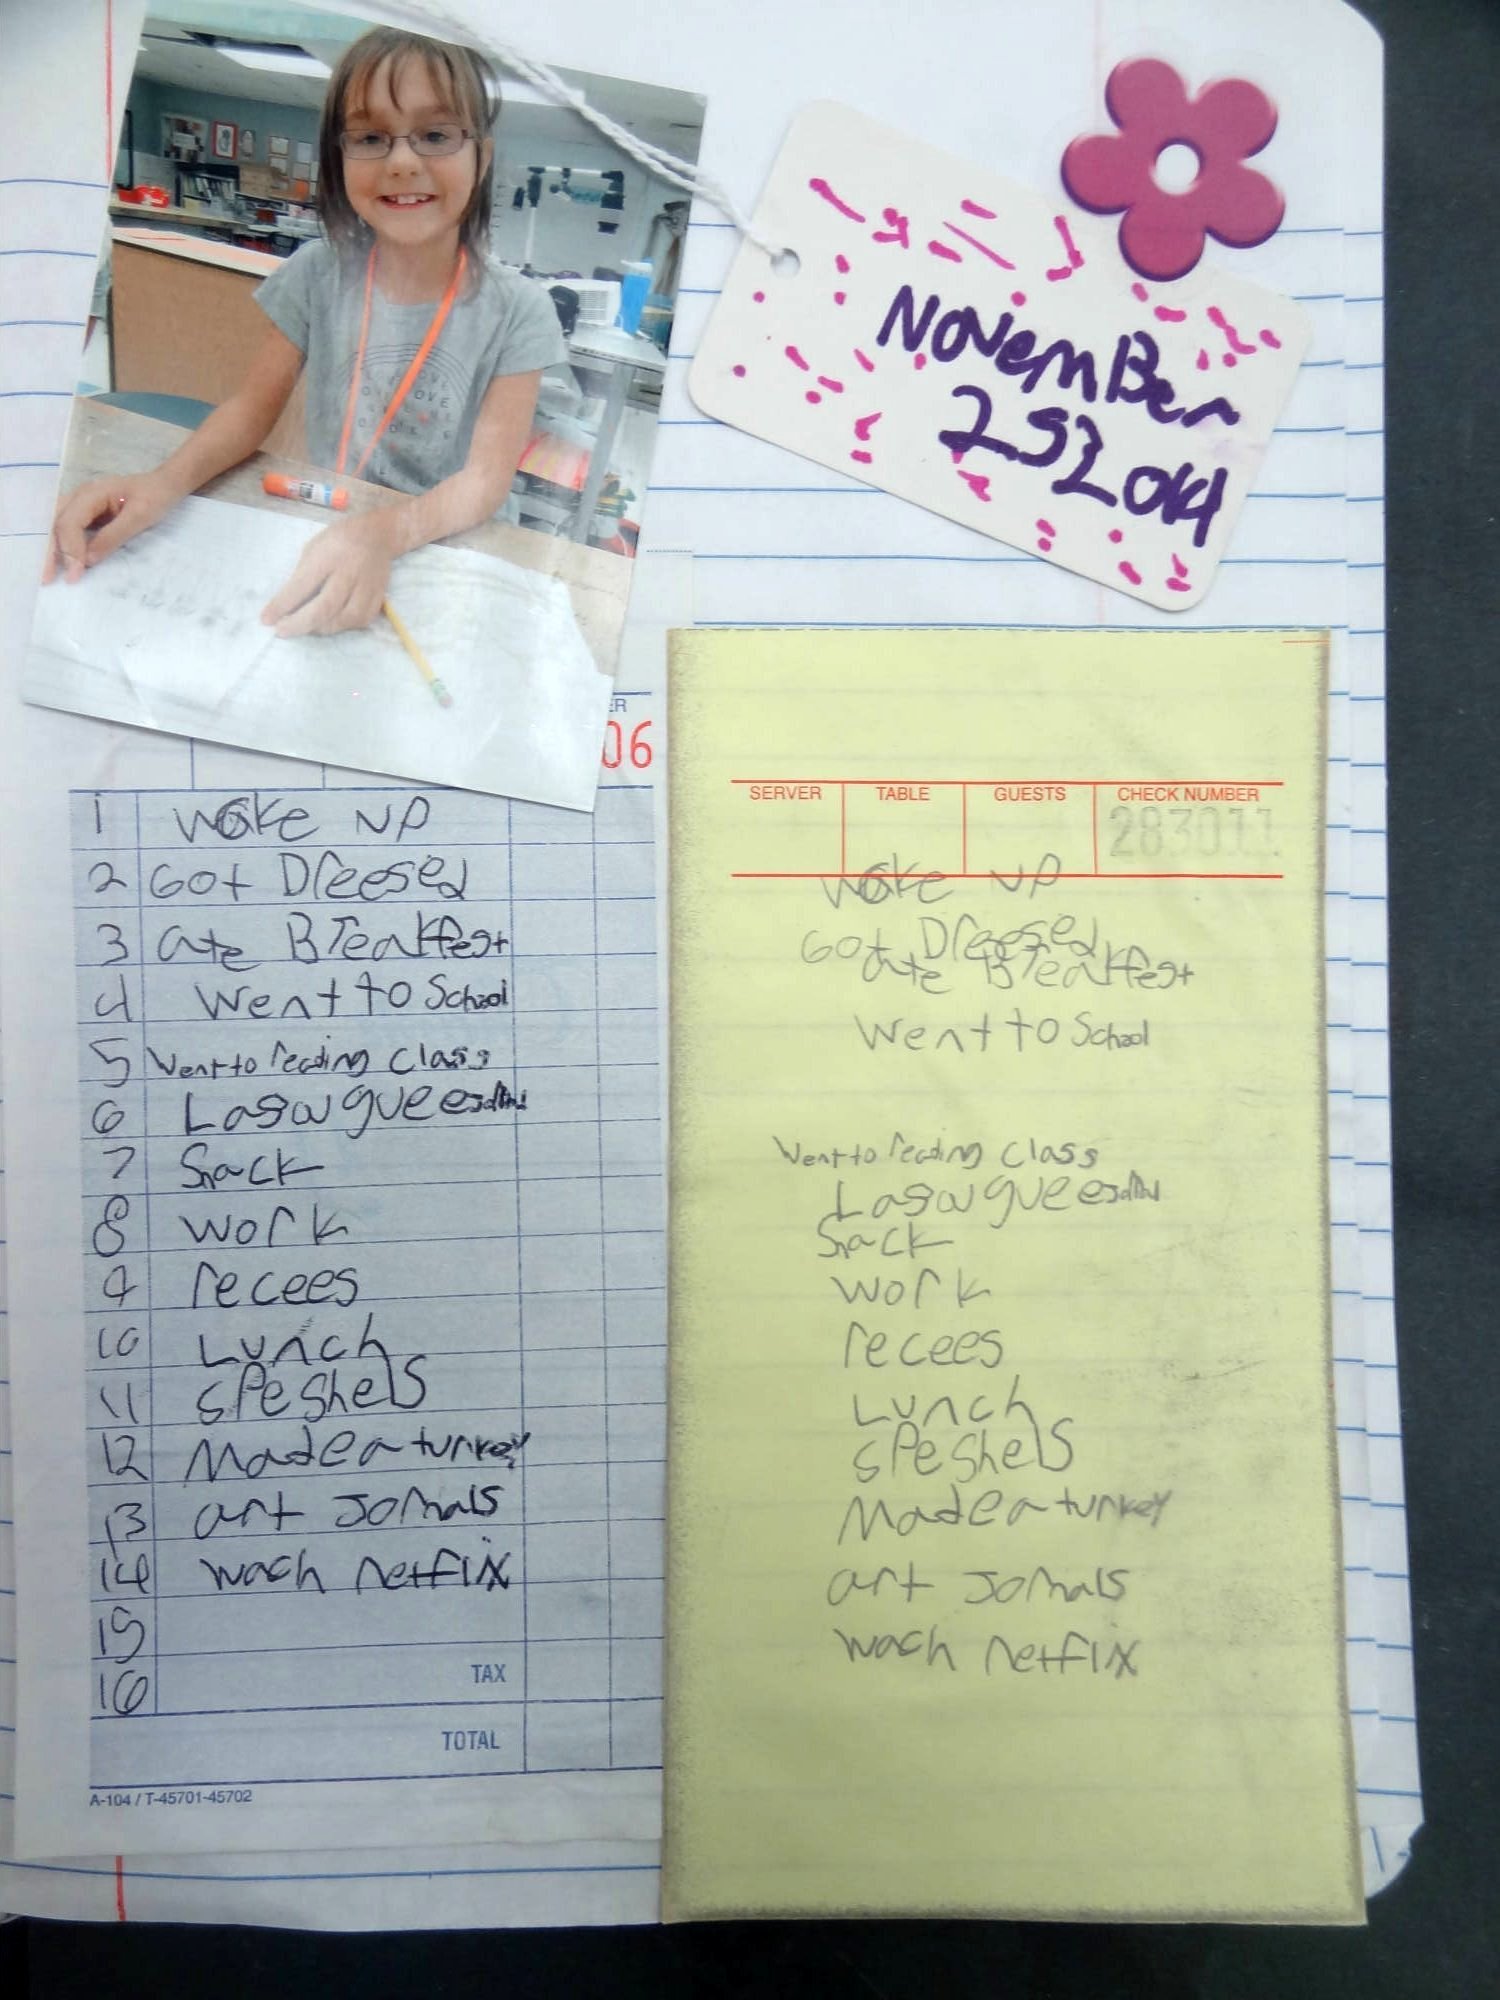 NovemBer
25 2014
ER
06
1 woke up
2 Got Dreesed
3 ate Breakfest
4 went to School
5 Went to reading class
6
7 Snack
8 work
9 recees
10 Lunch
11 speshels
12 Made a turkey
13 art Jornals
14 wach netfix
15
16 TAX
TOTAL
A-104 / T-45701-45702
SERVER TABLE GUESTS CHECK NUMBER
283011
woke up
Got Dreesed
ate Breakfest
went to School
Went to reading class
Snack
work
recees
Lunch
speshels
Made a turkey
art Jornals
wach netfix